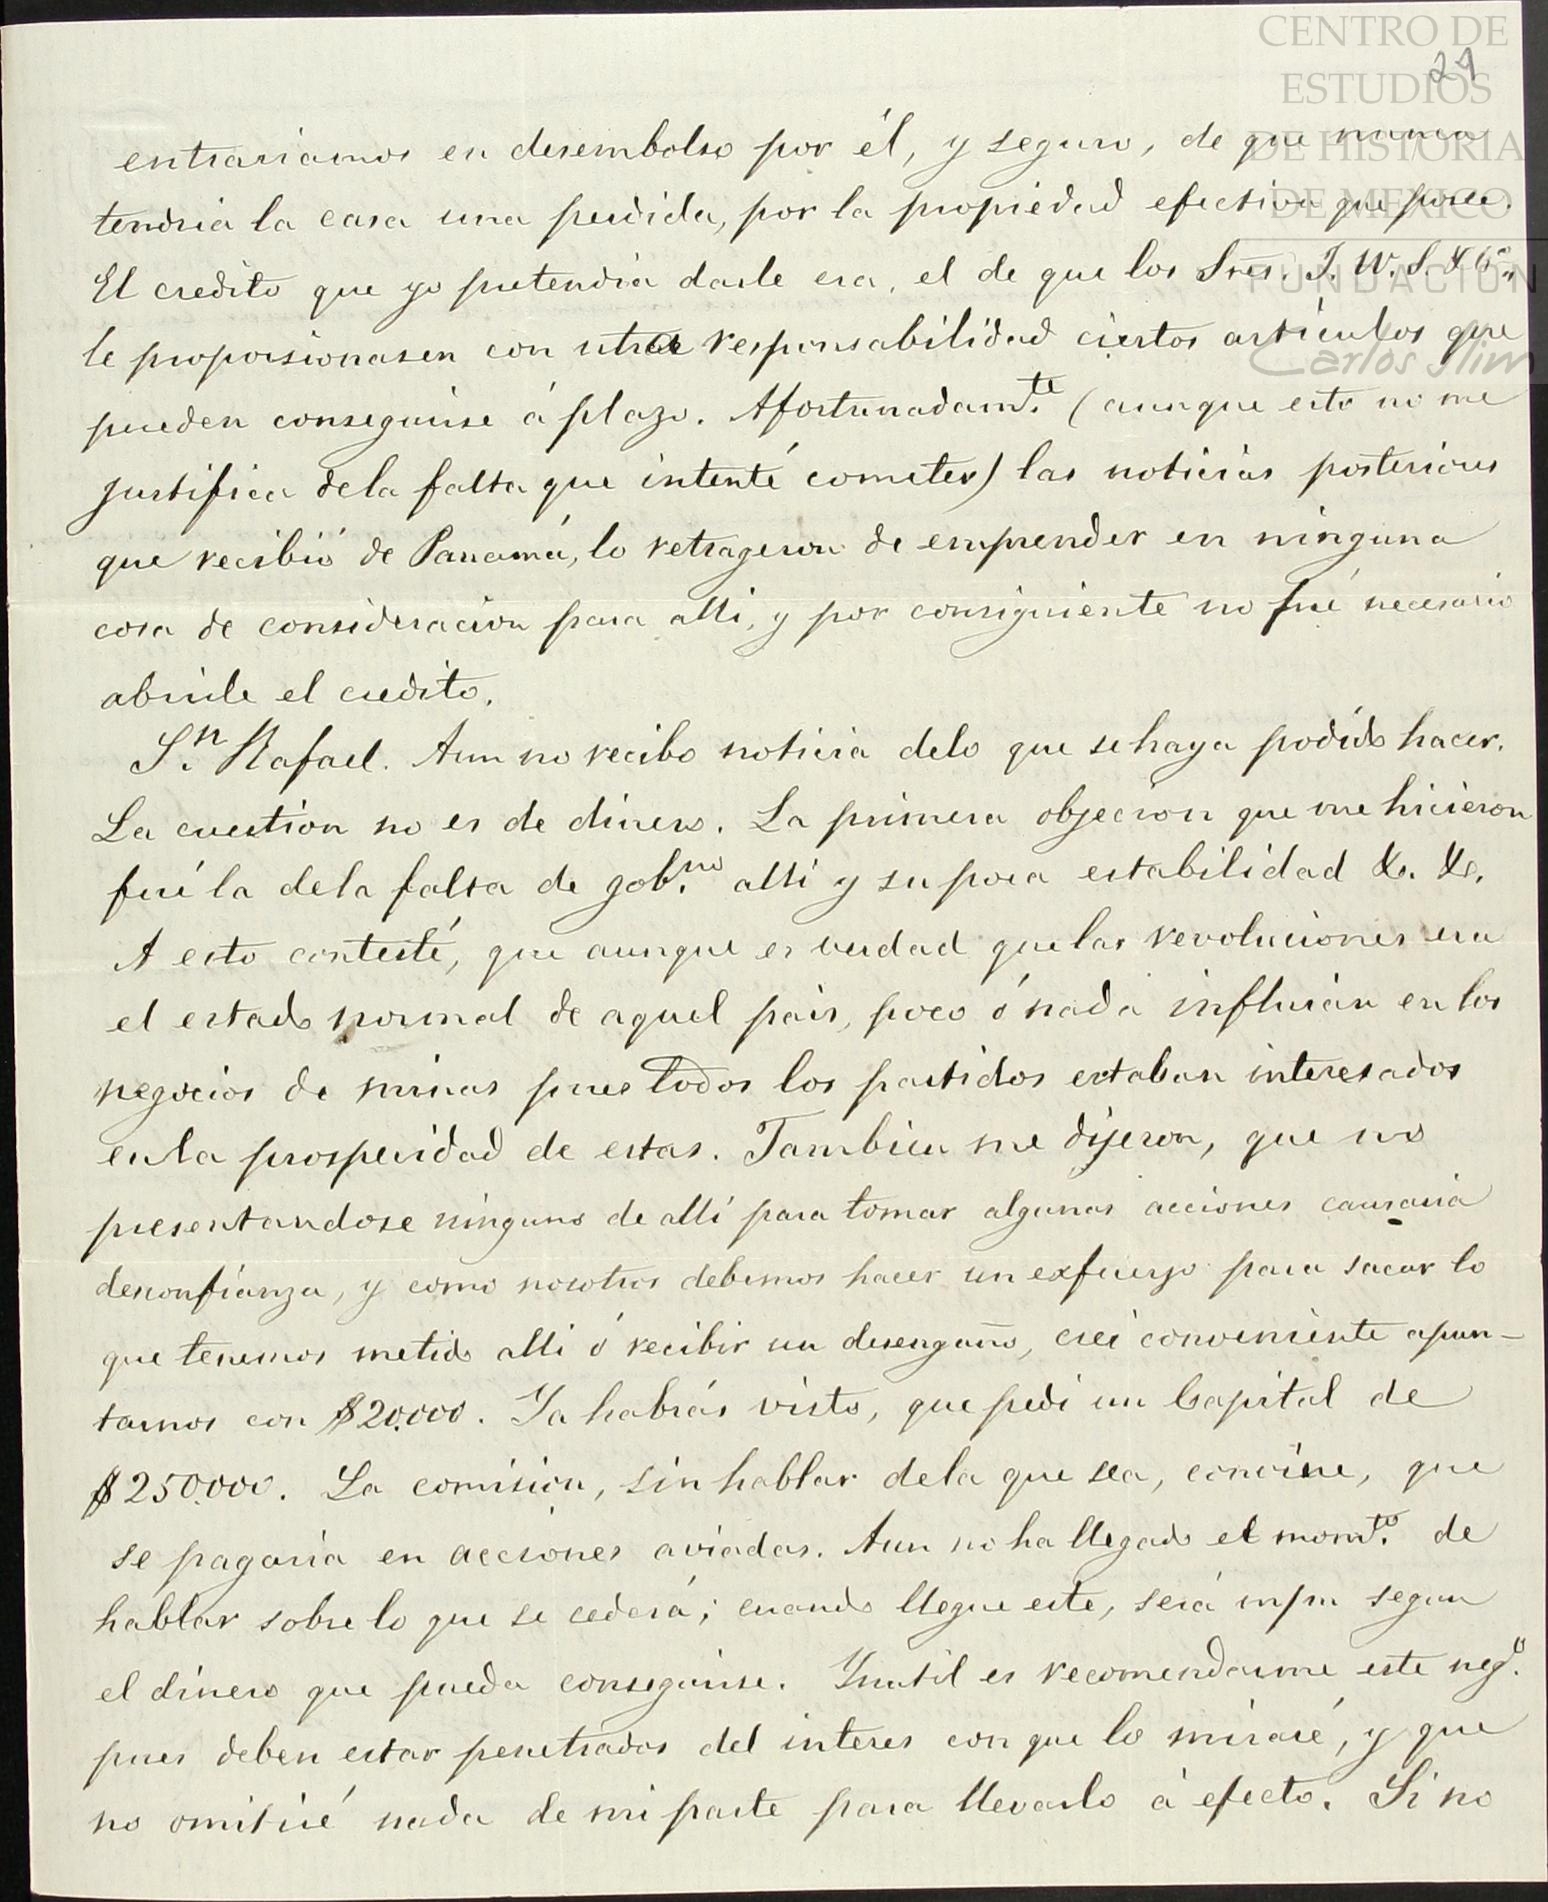 CENTRO DE
ESTUDIOS
DE HISTORIA
DE MEXICO
FUNDACIÓN
Carlos Slim
29
entrariamos en desembolso por él, y seguro, de que nunca
tendria la casa una perdida, por la propiedad efectiva que posee.
El credito que yo pretendia darle era, el de que los Sres. J. W. S. & Cª
le proporsionasen con ntra responsabilidad ciertos articulos que
pueden conseguirse á plazo. Afortunadamte. (aunque esto no me
justifica dela falta que intenté cometer) las noticias posteriores
que recibió de Panamá, lo retrageron de emprender en ninguna
cosa de consideracion para alli, y por consiguiente no fué necesario
abrirle el credito.
Sn. Rafael. Aun no recibo noticia delo que sehaya podido hacer.
La cuestion no es de dinero. La primera objecion que me hicieron
fué la dela falta de gobno. alli y su poca estabilidad &. &.
A esto contesté, que aunque es verdad quelas revoluciones era
el estado normal de aquel pais, poco ó nada influián en los
negocios de minas pues todos los partidos estaban interesados
enla prosperidad de estas. Tambien me dijeron, que no
presentandose ninguno de alli para tomar algunas acciones causaria
desconfianza, y como nosotros debemos hacer un exfuerzo para sacar lo
que tenemos metido alli ó recibir un desengaño, crei conveniente apun-
tarnos con $20.000. Ya habrás visto, que pedi un Capital de
$250.000. La comision, sin hablar dela que sea, convine, que
se pagaria en acciones aviadas. Aun no ha llegado el momto. de
hablar sobre lo que se cederá; cuando llegue este, será segun
el dinero que pueda conseguirse. Ynutil es recomendarme este nego.
pues deben estar penetrados del interes con que lo miraré, y que
no omitiré nada de mi parte para llevarlo á efecto. Si no